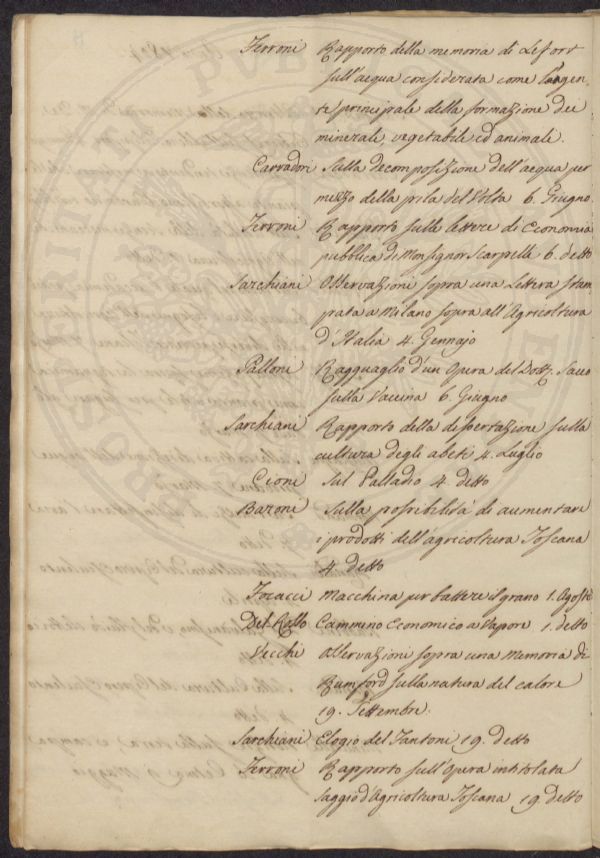 Ferroni Rapporto della memoria di Lefort
sull'acqua considerata come l'agen-
te principale della formazione dei
minerale, vegetabile ed animale.
Carradori Sulla decomposizione dell'acqua per
mezzo della pila del Volta 6. Giugno
Ferroni Rapporto sulle lettere di Economia
pubblica di Monsignor Scarpelli 6. detto
Sarchiani Osservazioni sopra una Lettera stam-
pata a Milano sopra all'Agricoltura
d'Italia 4. Gennajo
Palloni Ragguaglio d'un Opera del Dott. Sacco
sulla Vaccina 6. Giugno
Sarchiani Rapporto della dissertazione sulla
cultura degli abeti 4. Luglio
Cioni Sul Palladio 4. detto
Baroni Sulla possibilità di aumentare
i prodotti dell'agricoltura Toscana
4. detto
Focacci Macchina per battere il grano 1. Agosto
Del Rosso Cammino Economico a Vapore 1. detto
Vecchi Osservazioni sopra una Memoria di
Rumford sulla natura del calore
19. Settembre.
Sarchiani Elogio del Fantoni 19. detto
Ferroni Rapporto sull'Opera intitolata
Saggio d'Agricoltura Toscana 19. detto